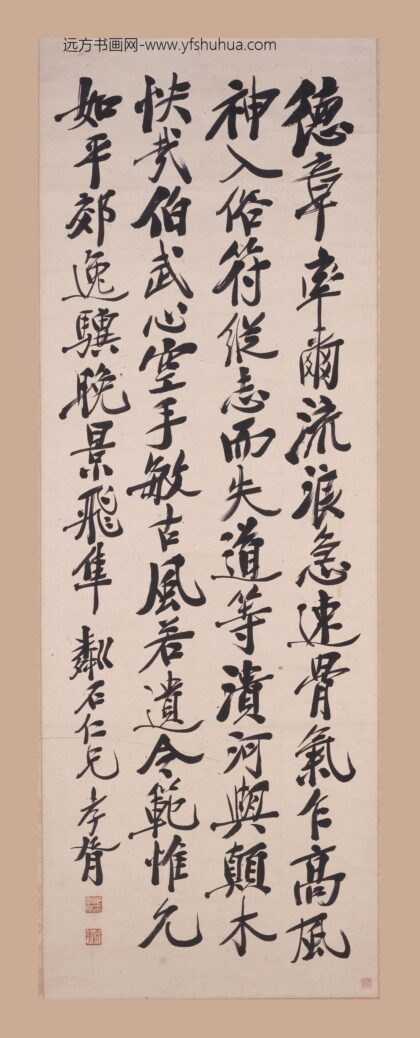 远方书画网-www.yfshuhua.com
德章率爾流浪急速骨氣乍高風
神入俗符縱志而失道等潰河與顛木
快哉伯武心空手敏古風若遺令範惟允
如平郊逸驥晚景飛隼
石仁兄 孝胥